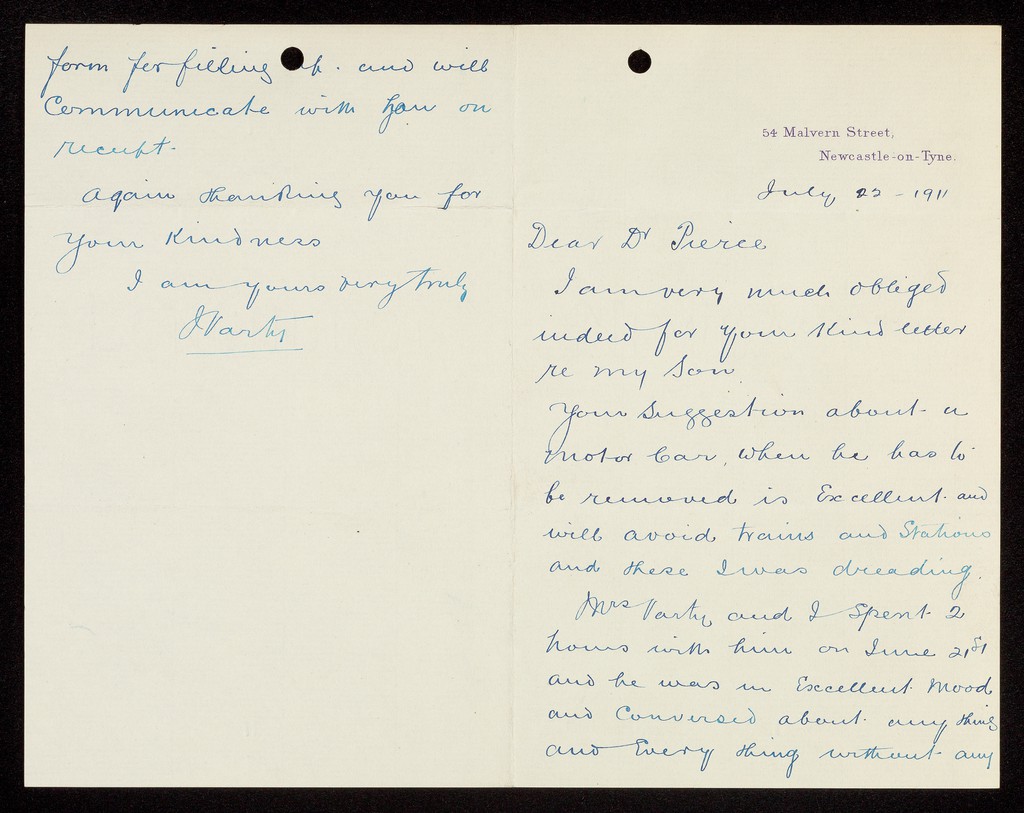 54 Malvern Street,
Newcastle-on-Tyne.
July 22 - 1911
Dear Dr Pierce
I am very much obliged
indeed for your kind letter
re my son
Your suggestion about a
motor Car, when he has to
be removed is Excellent and
will avoid trains and Stations
and these I was dreading.
Mrs Varty and I spent 2
hours with him on June 21st
and he was in Excellent Mood
and Conversed about any thing
and Every thing without any
form for filling up. and will
Communicate with you on
receipt.
Again thanking you for
your Kindness
I am yours very truly
J Varty